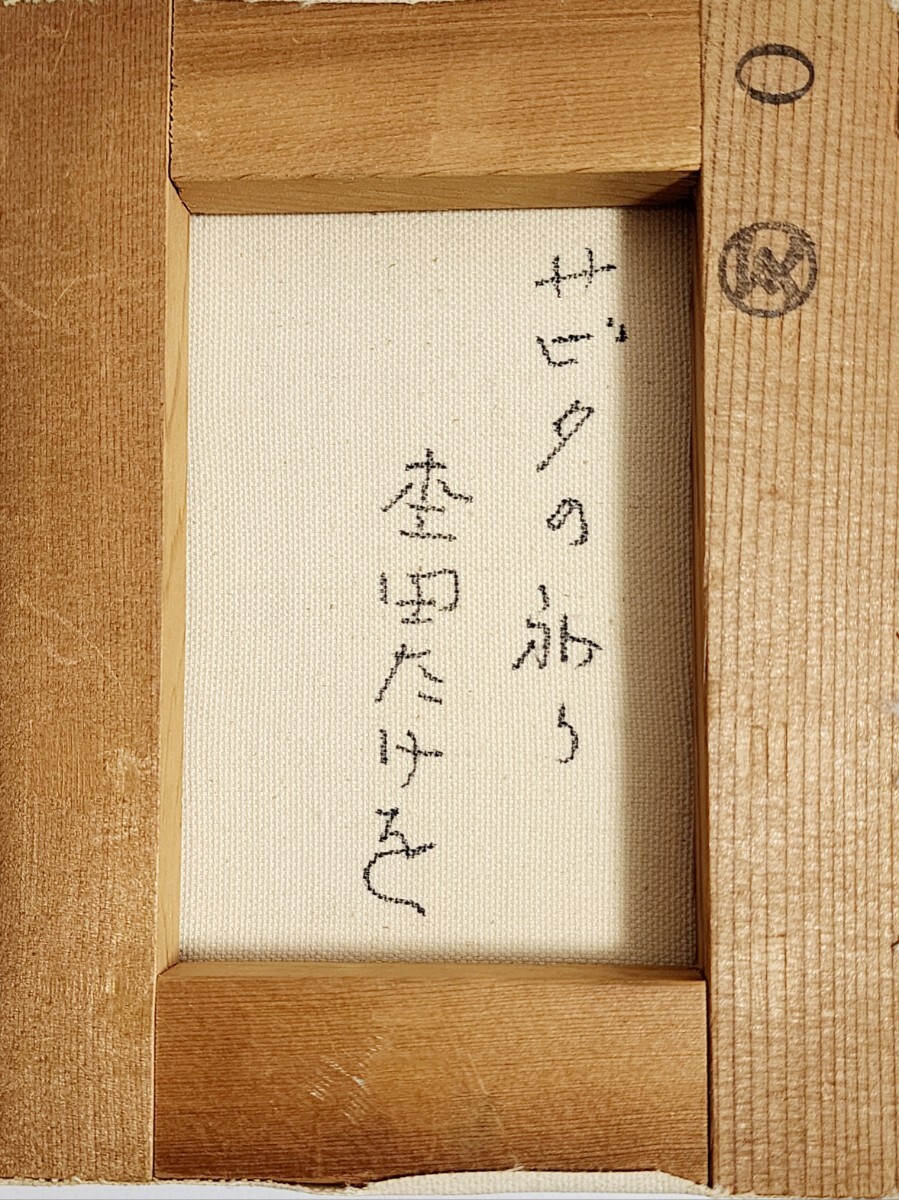 0
サビタの祈り
杢田たけを